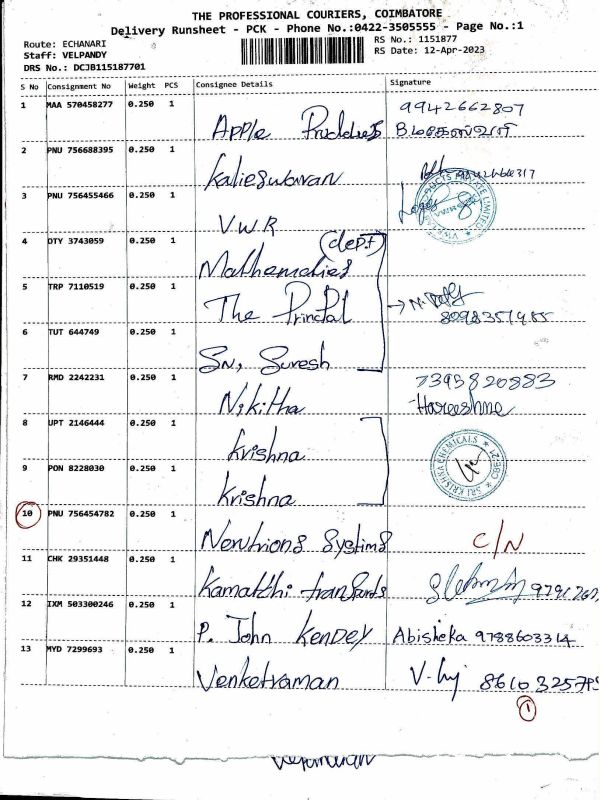 THE PROFESSIONAL COURIERS, COIMBATORE
Delivery Runsheet - PCK - Phone No.:0422-3505555 - Page No.:1
Route: ECHANARI
RS No.: 1151877
Staff: VELPANDY
RS Date: 12-Apr-2023
DRS No.: DCJB115187701
S No Consignment No Weight PCS Consignee Details Signature
1 MAA 570458277 0.250 1 9942662807
Apple
2 PNU 756688395 0.250 1
Kalieswaran
3 PNU 756455466 0.250 1
VWR
4 DTY 3743059 0.250 1 (dept)
Mathematies
5 TRP 7110519 0.250 1
The Prinpal
6 TUT 644749 0.250 1
SN, Suresh
7 RMD 2242231 0.250 1 7395820883
Nikitha Hareeshme
8 UPT 2146444 0.250 1
krishna
9 PON 8228030 0.250 1 SRI KRISHNA CHEMICALS
krishna
10 PNU 756454782 0.250 1
Newtrions Systims C/N
11 CHK 29351448 0.250 1
12 IXM 503300246 0.250 1
P. John Kendey Abisheka 9788603314
13 MYD 7299693 0.250 1
Venketraman
1